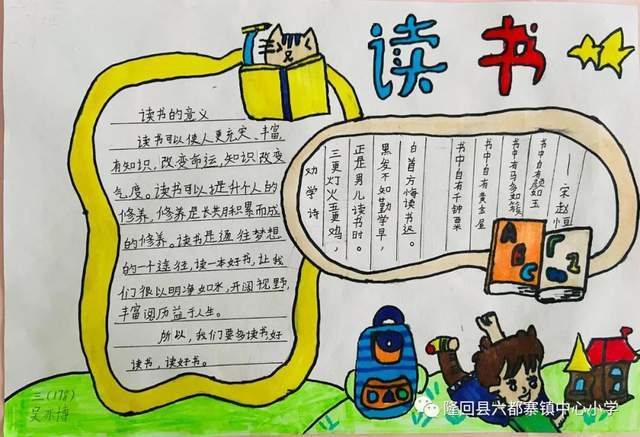 读书
读书的意义
读书可以使人更充实、丰富，
有知识，改变命运，知识改变
气度。读书可以提升个人的
修养，修养是长其月积累而成
的修养。读书是通往梦想
的一个途径，读一本好书，让我
们很以明净如水，开阔视野，
丰富阅历益于人生。
所以，我们要多读书好
读书，读好书。
劝学诗
三更灯火五更鸡，
正是男儿读书时。
黑发不知勤学早，
白首方悔读书迟。
书中自有千钟粟
书中自有黄金屋
书中有马多如簇
书中自有颜如玉
——宋赵恒
A
B
C
2
三(178)
隆回县六都寨镇中心小学